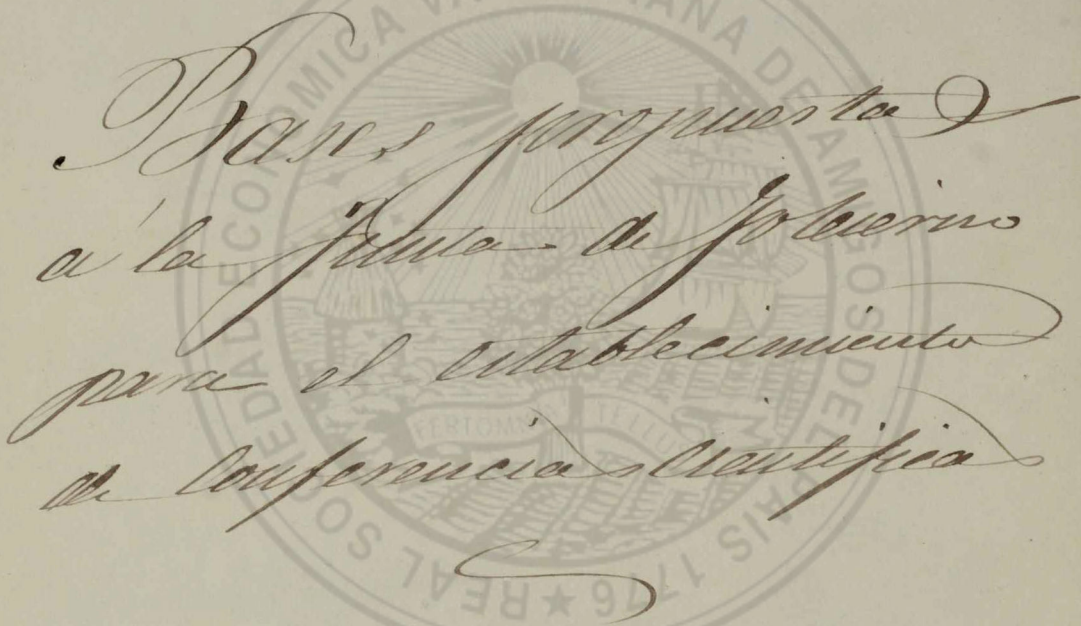 Bases propuestas
à la Junta de Gobierno
para el establecimiento
de Conferencias Cientificas
REAL SOCIEDAD ECONOMICA VALENCIANA DE AMIGOS DEL PAIS 1776
FERTOMNIA TELLUS